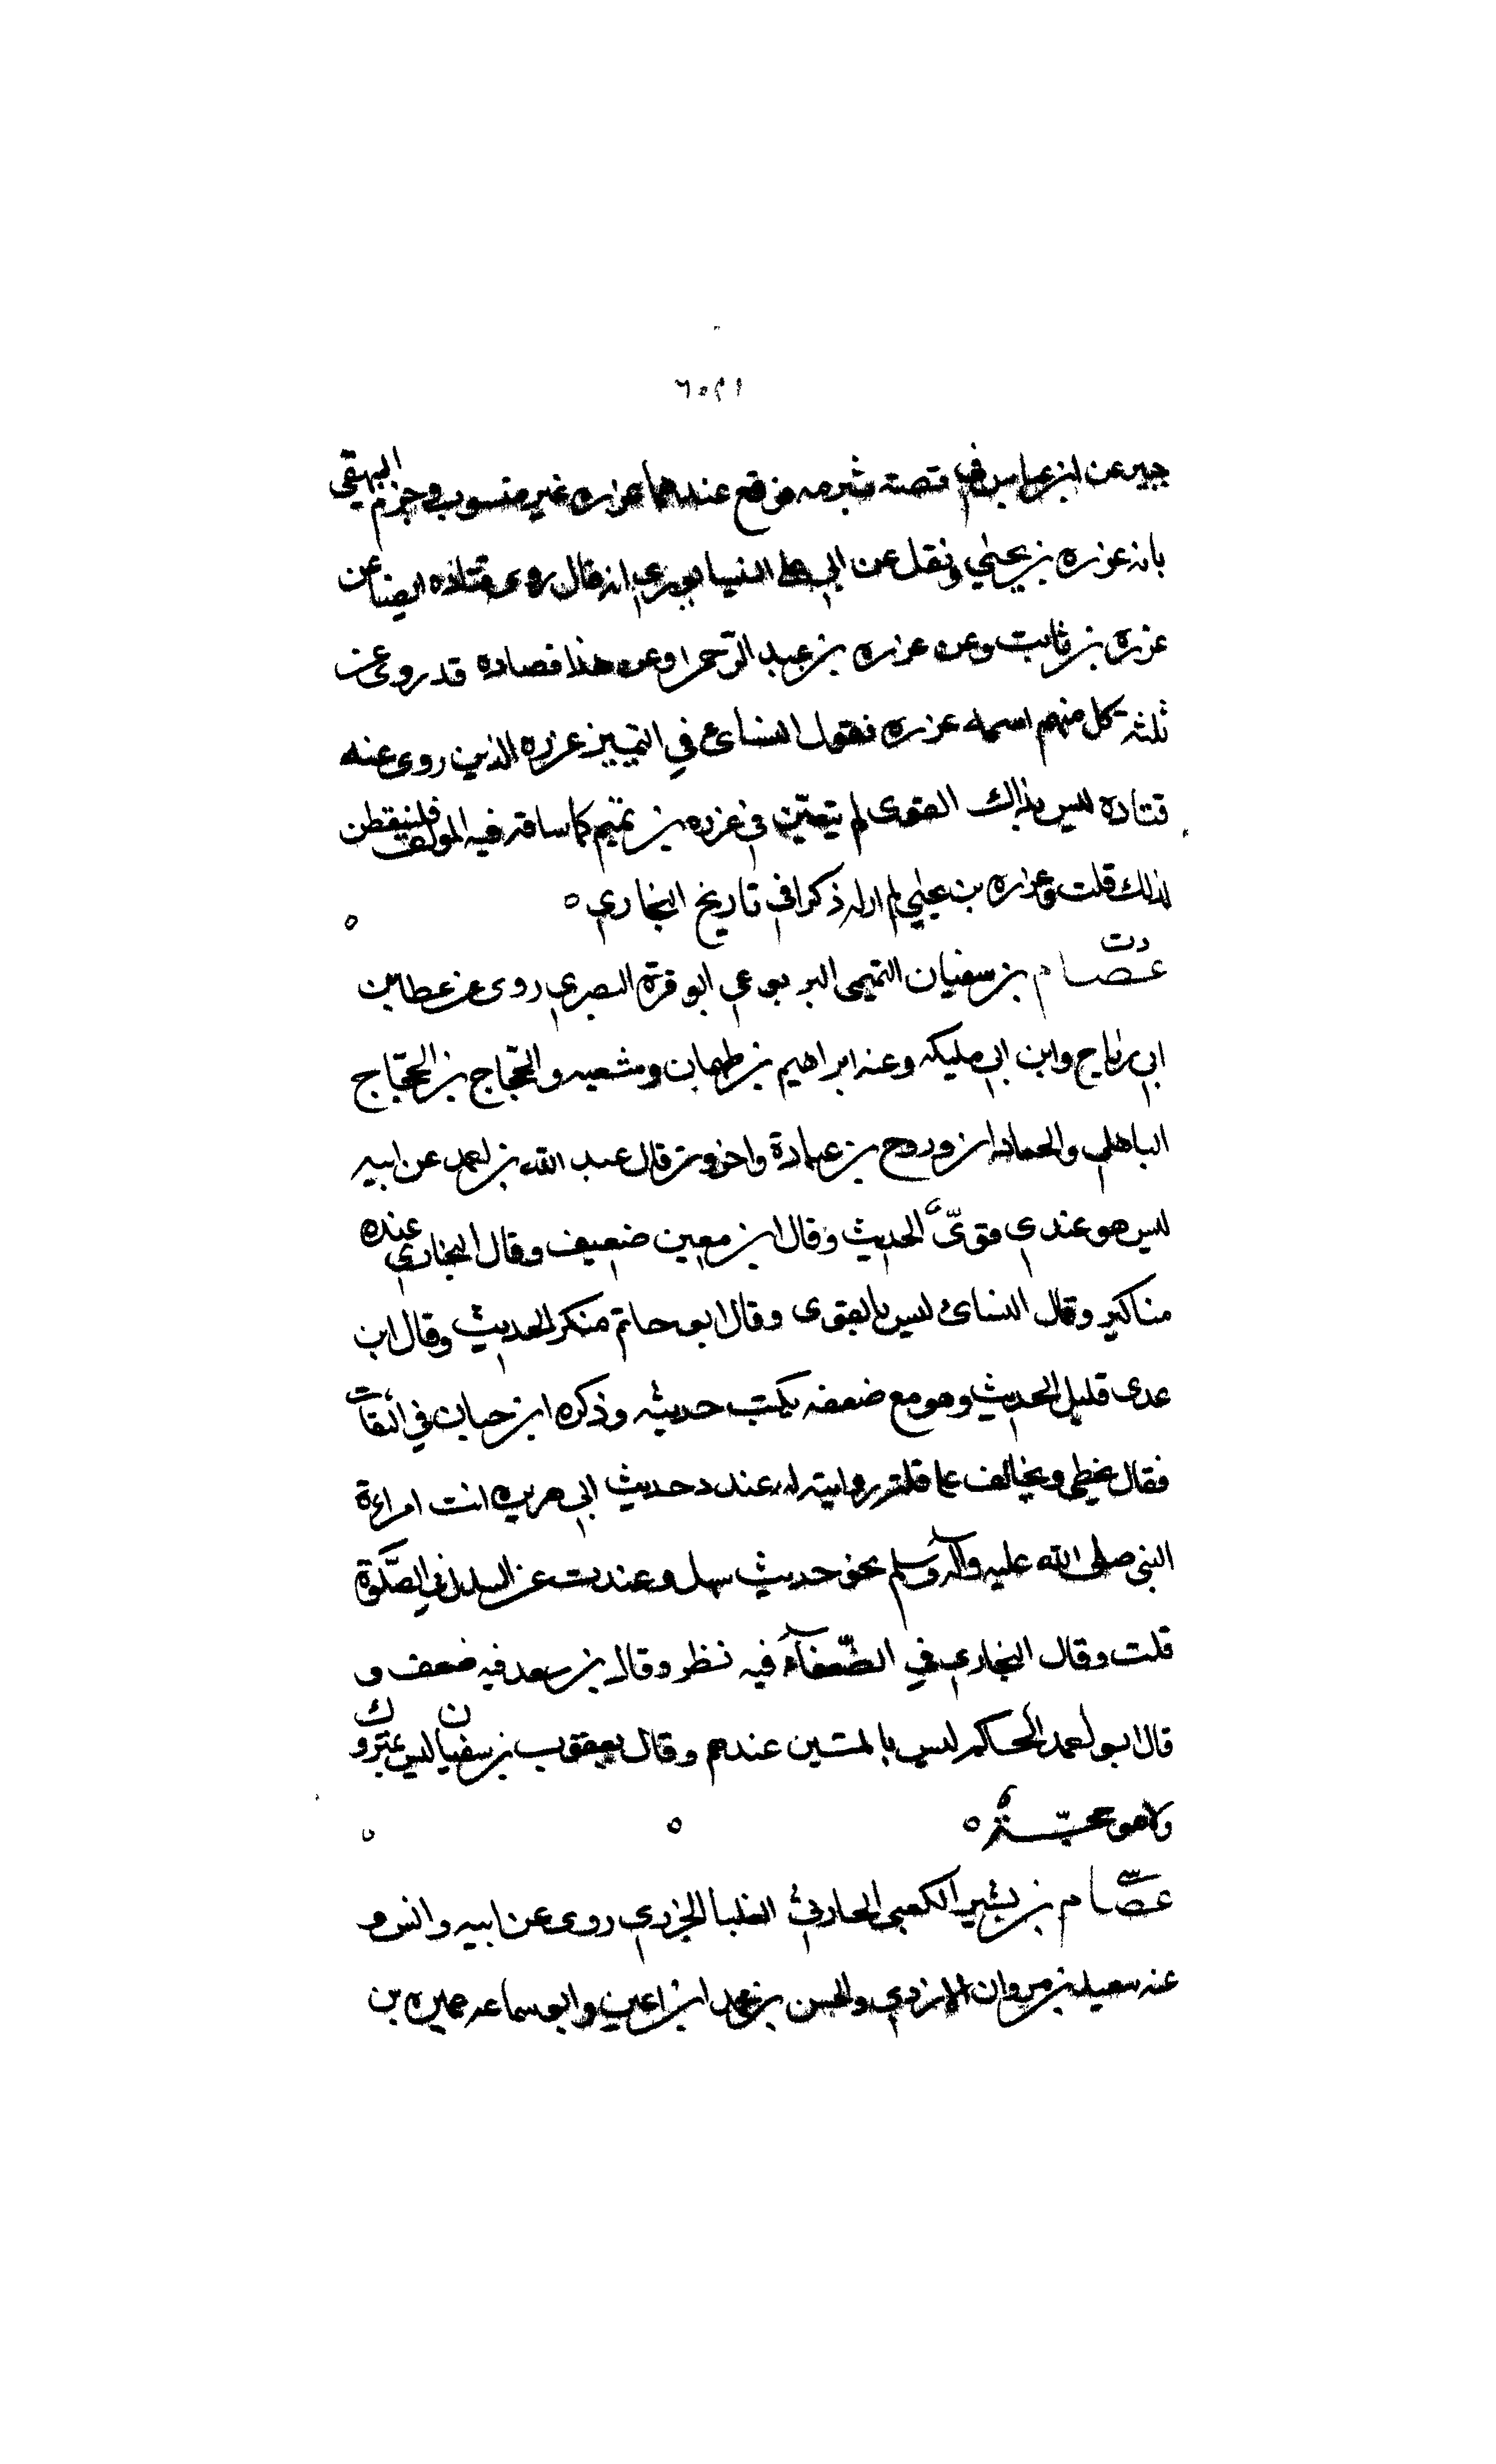 ١٢٥٦
جبير عن ابن عباس في قصته شبرمه فوقع عندهما عزره غير منسوب وجزم البيهقي
بانه عزره بن يحيٰي ونقل عن ابي علي النيسابوري انه قال روى قتاده ايضا عن
عزره بن ثابت وعن عزره بن عبد الرّحمن وعن هذا فقتاده قد روى عن
ثلثة كل منهم اسمه عزره فقول النسائ في التمييز عزره الذي روى عنه
قتادة ليس بذاك القوى لم يتعيّن في عزره بن تميم كما ساقه فيه المؤلف فليتفطن
لذلك قلت وعزره بن يحيٰي لم ار له ذكرا في تاريخ البخاري ه
ه
د ت
عـــصــــام بن سفيان التميمى اليربوعي ابو قرة البصري روى عن عطا بن
ابي رباح وابن ابي مليكه وعنه ابراهيم بن طهمان وشعبه والحجّاج بن الحجّاج
الباهلي والحمادان وروح بن عبادة واخرون قال عبد الله بن احمد عن ابيه
ليس هو عندي قويّ الحديث وقال ابن معين ضعيف وقال البخاري عنده
مناكير وقال النسائ ليس بالقوى وقال ابو حاتم منكر الحديث وقال ابن
عدى قليل الحديث وهو مع ضعفه يكتب حديثه وذكره ابن حبان في الثقات
فقال يخطى ويخالف على قلته روايته له عند د حديث ابي هريره اتت امراءة
النبى صلى الله عليه وآله وسلم نحو حديث سهل وعند ت عن السدل في الصّلٰوة
قلت وقال البخاري في الضّعفآء فيه نظر وقال بن سعد فيه ضعف و
قال ابو احمد الحاكم ليس بالمتين عندهم وقال يعقوب بن سفيان ليس بمتروك
ولا هو حجّـــة ه ه ه
عـصـــام بن بشير الكعبى الحارثي ابو غلباء الجزري روى عن ابيه وانس و
عنه سعيد بن مروان الازدي والحسن بن محمد ابن اعين وابو سماعه عميره بن